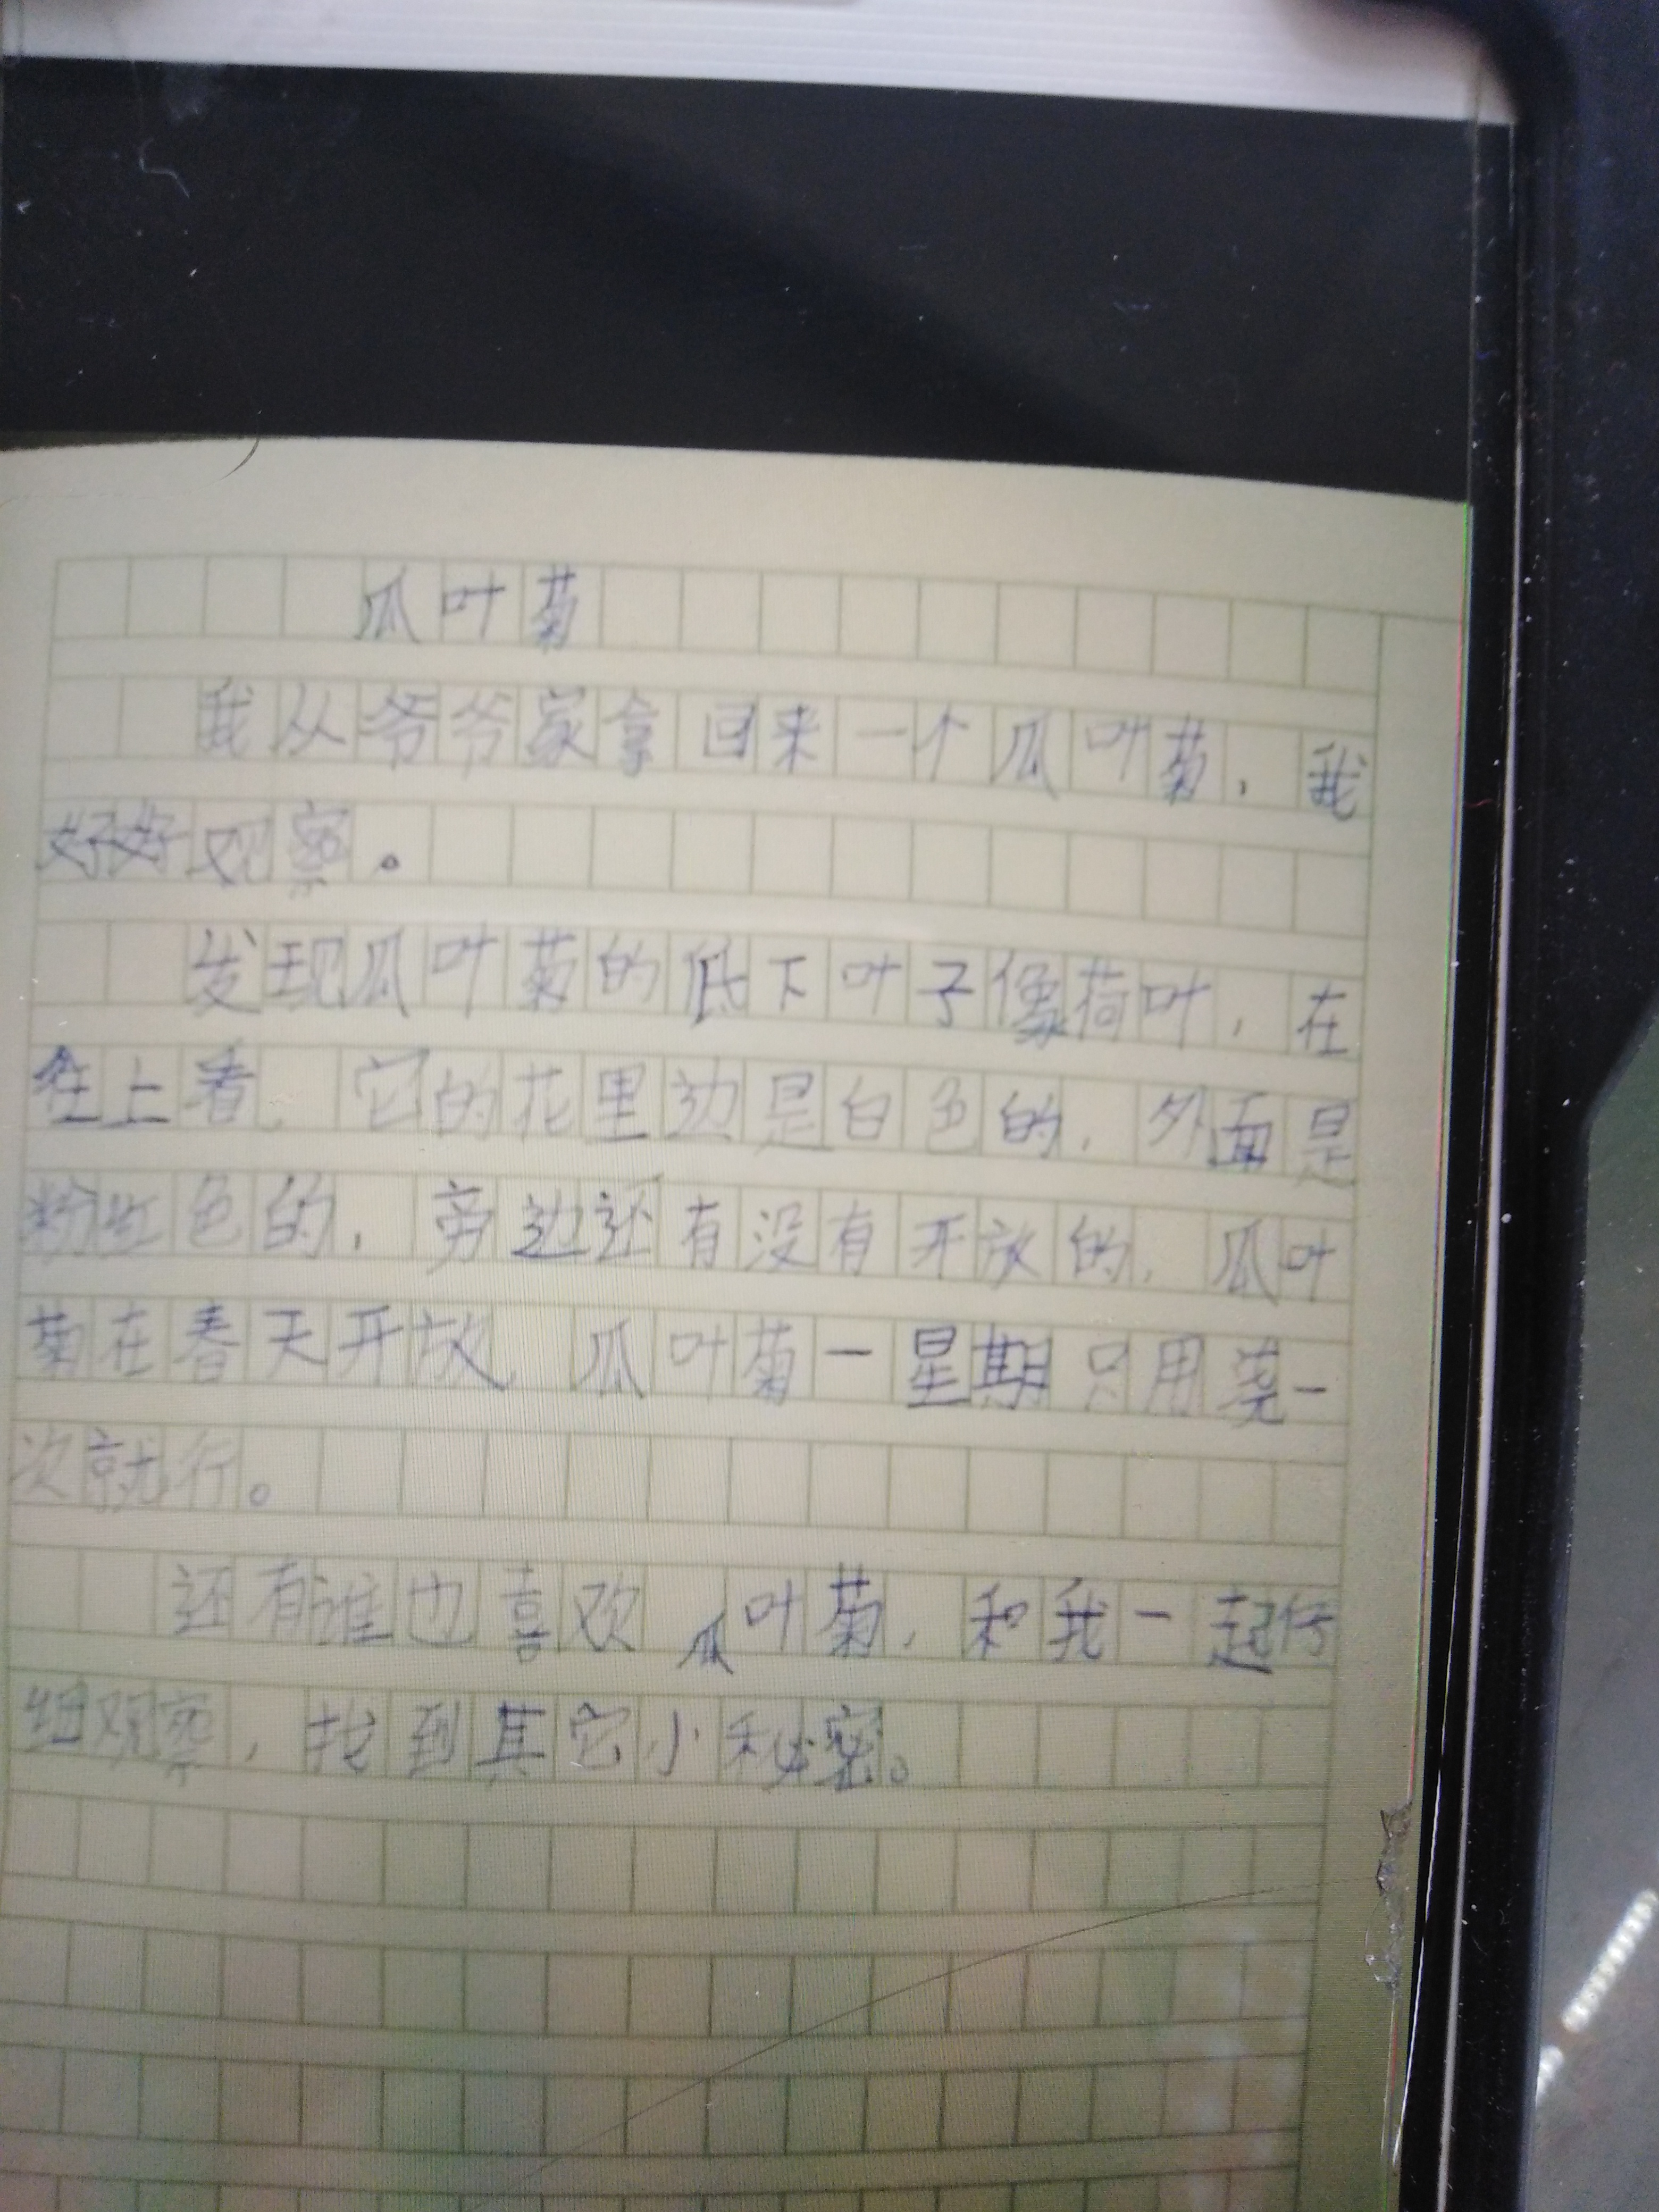 瓜叶菊
我从爷爷家拿回来一个瓜叶菊，我
好好观察。
发现瓜叶菊的低下叶子像荷叶，在
往上看，它的花里边是白色的，外面是
粉红色的，旁边还有没有开放的，瓜叶
菊在春天开放，瓜叶菊一星期只用浇一
次就行。
还有谁也喜欢瓜叶菊，和我一起仔
细观察，找到其它小秘密。